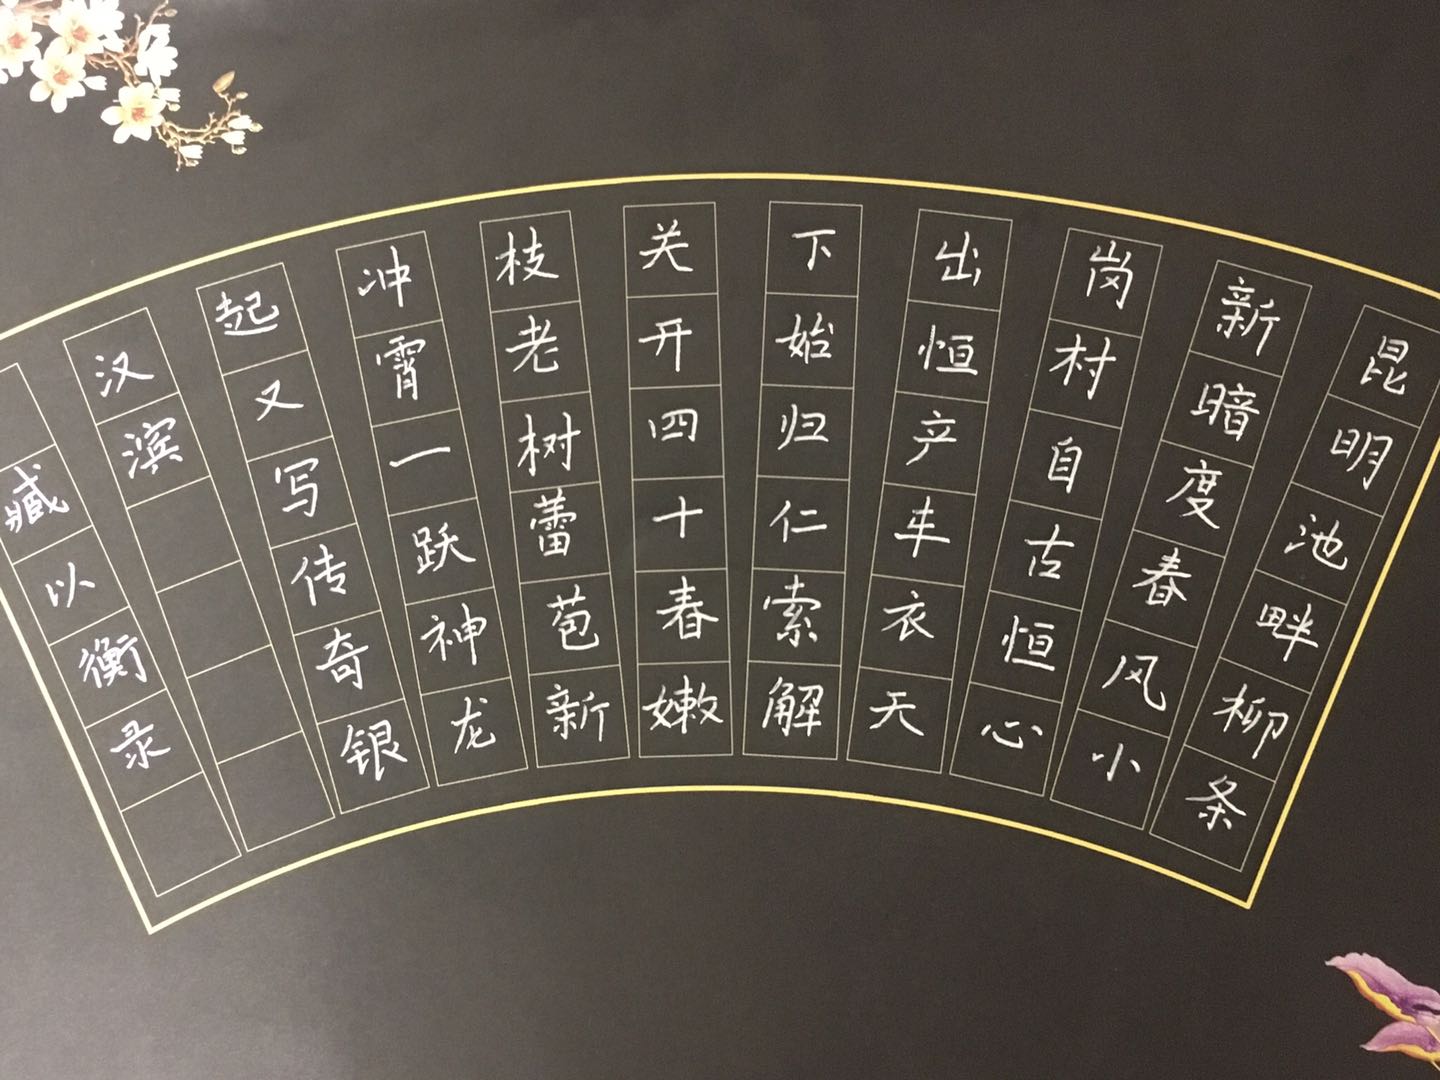 昆明池畔柳条
新暗度春风小
岗村自古恒心
出恒产丰衣天
下始归仁索解
关开四十春嫩
枝老树蕾苞新
冲霄一跃神龙
起又写传奇银
汉滨
臧以衡录